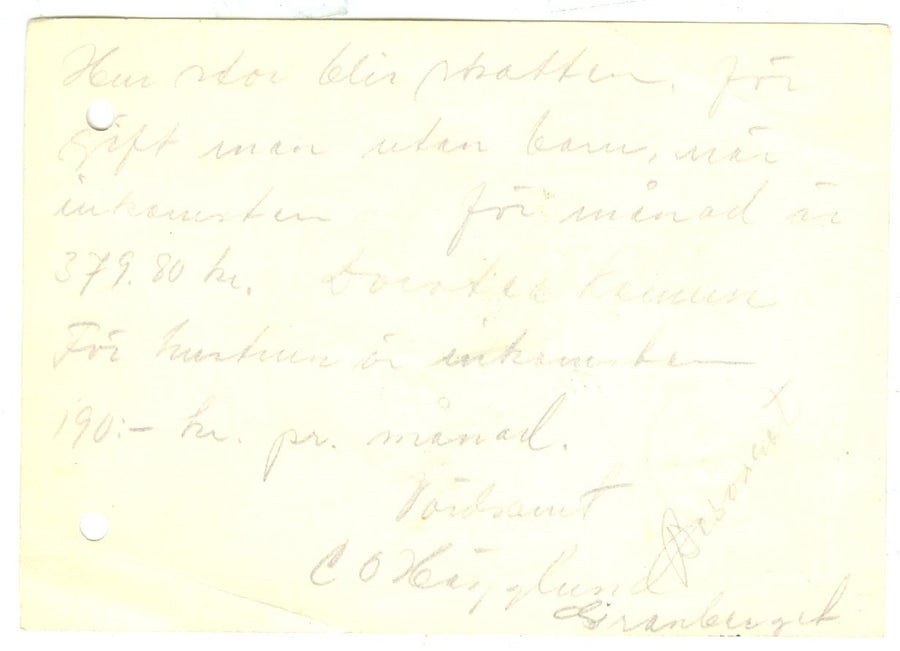 Hur stor blir skatten, för
gift man utan barn, när
inkomsten för månad är
379.80 kr. Dorotea kommun
För hustrun är inkomsten
190:- kr. pr. månad.
Vördsamt
C O Hägglund
Granberget
Besvarat